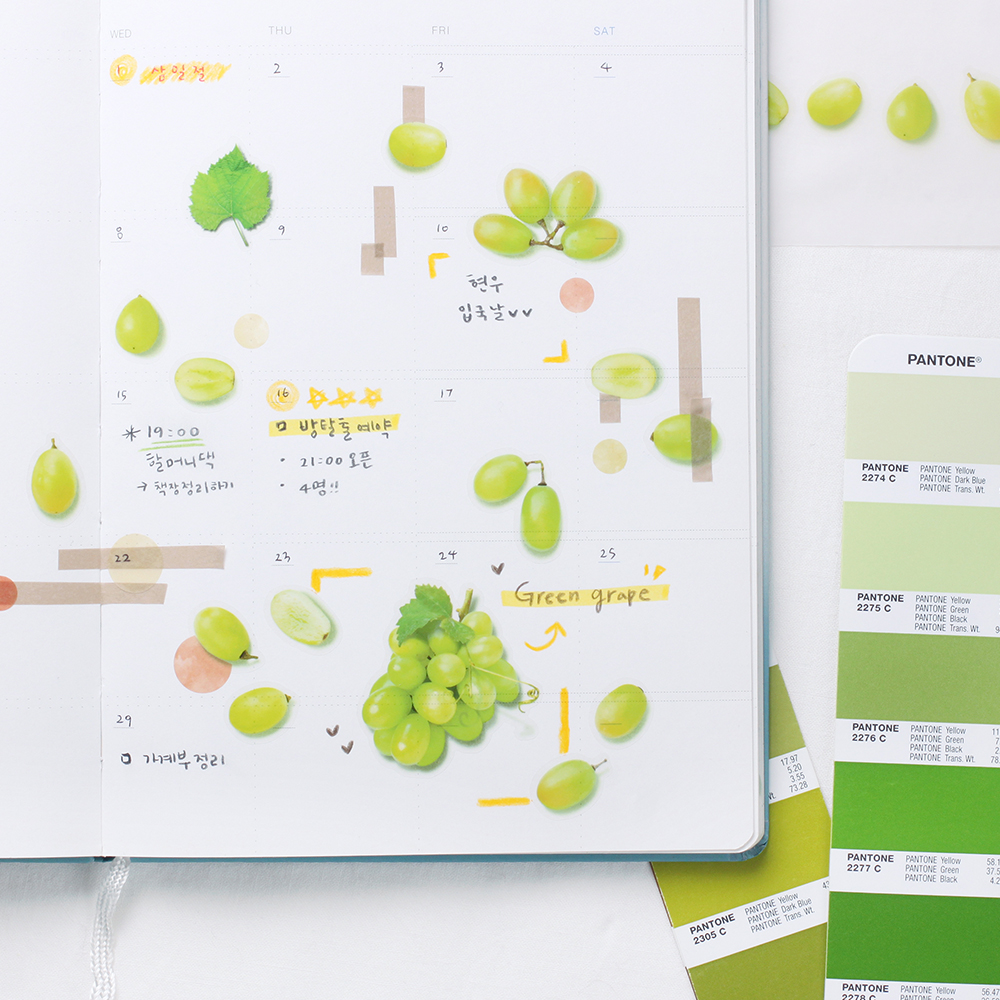 WED THU FRI SAT
1 삼일절 2 3 4
8 9 10
현우
입국날
15 16 17
19:00
할머니댁
→ 책장정리하기
방탈출 예약
· 21:00 오픈
· 4명!!
22 23 24 25
Green grape
29
가계부정리
PANTONE®
PANTONE
2274 C
PANTONE Yellow
PANTONE Dark Blue
PANTONE Trans. Wt.
PANTONE
2275 C
PANTONE Yellow
PANTONE Green
PANTONE Black
PANTONE Trans. Wt.
PANTONE
2276 C
PANTONE Yellow
PANTONE Green
PANTONE Black
PANTONE Trans. Wt.
PANTONE
2277 C
PANTONE Yellow
PANTONE Green
PANTONE Black
PANTONE
2278 C
PANTONE Yellow
PANTONE Green
17.97
5.20
3.55
73.28
PANTONE
2305 C
PANTONE Yellow
PANTONE Dark Blue
PANTONE Trans. Wt.